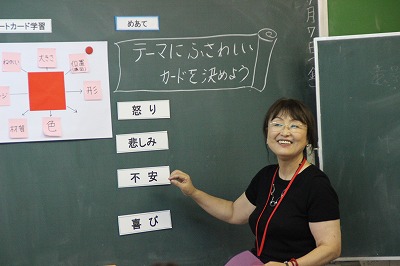 ートカード学習
めあて
テーマにふさわしい
カードを決めよう
大きさ
位置
形
材質
色
怒り
悲しみ
不安
喜び